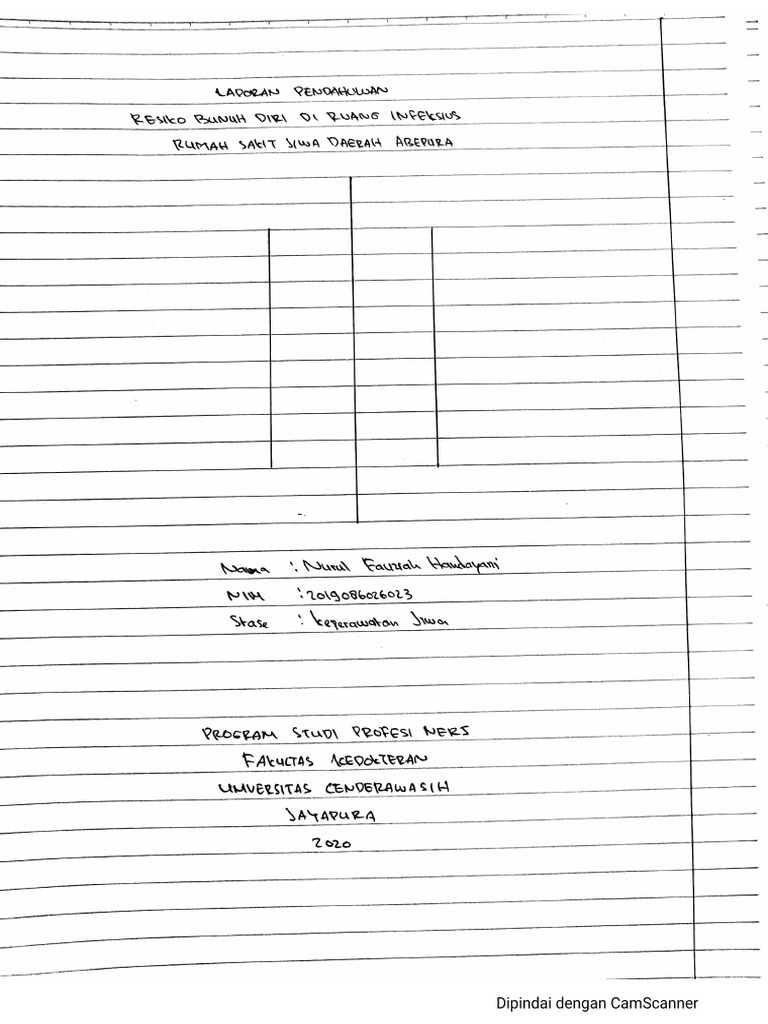 LAPORAN PENDAHULUAN
RESIKO BUNUH DIRI DI RUANG INFEKSIUS
RUMAH SAKIT JIWA DAERAH ABEPURA
Nama : Nurul Fauziah Handayani
NIM : 2019086026023
Stase : Keperawatan Jiwa
PROGRAM STUDI PROFESI NERS
FAKULTAS KEDOKTERAN
UNIVERSITAS CENDERAWASIH
JAYAPURA
2020
Dipindai dengan CamScanner